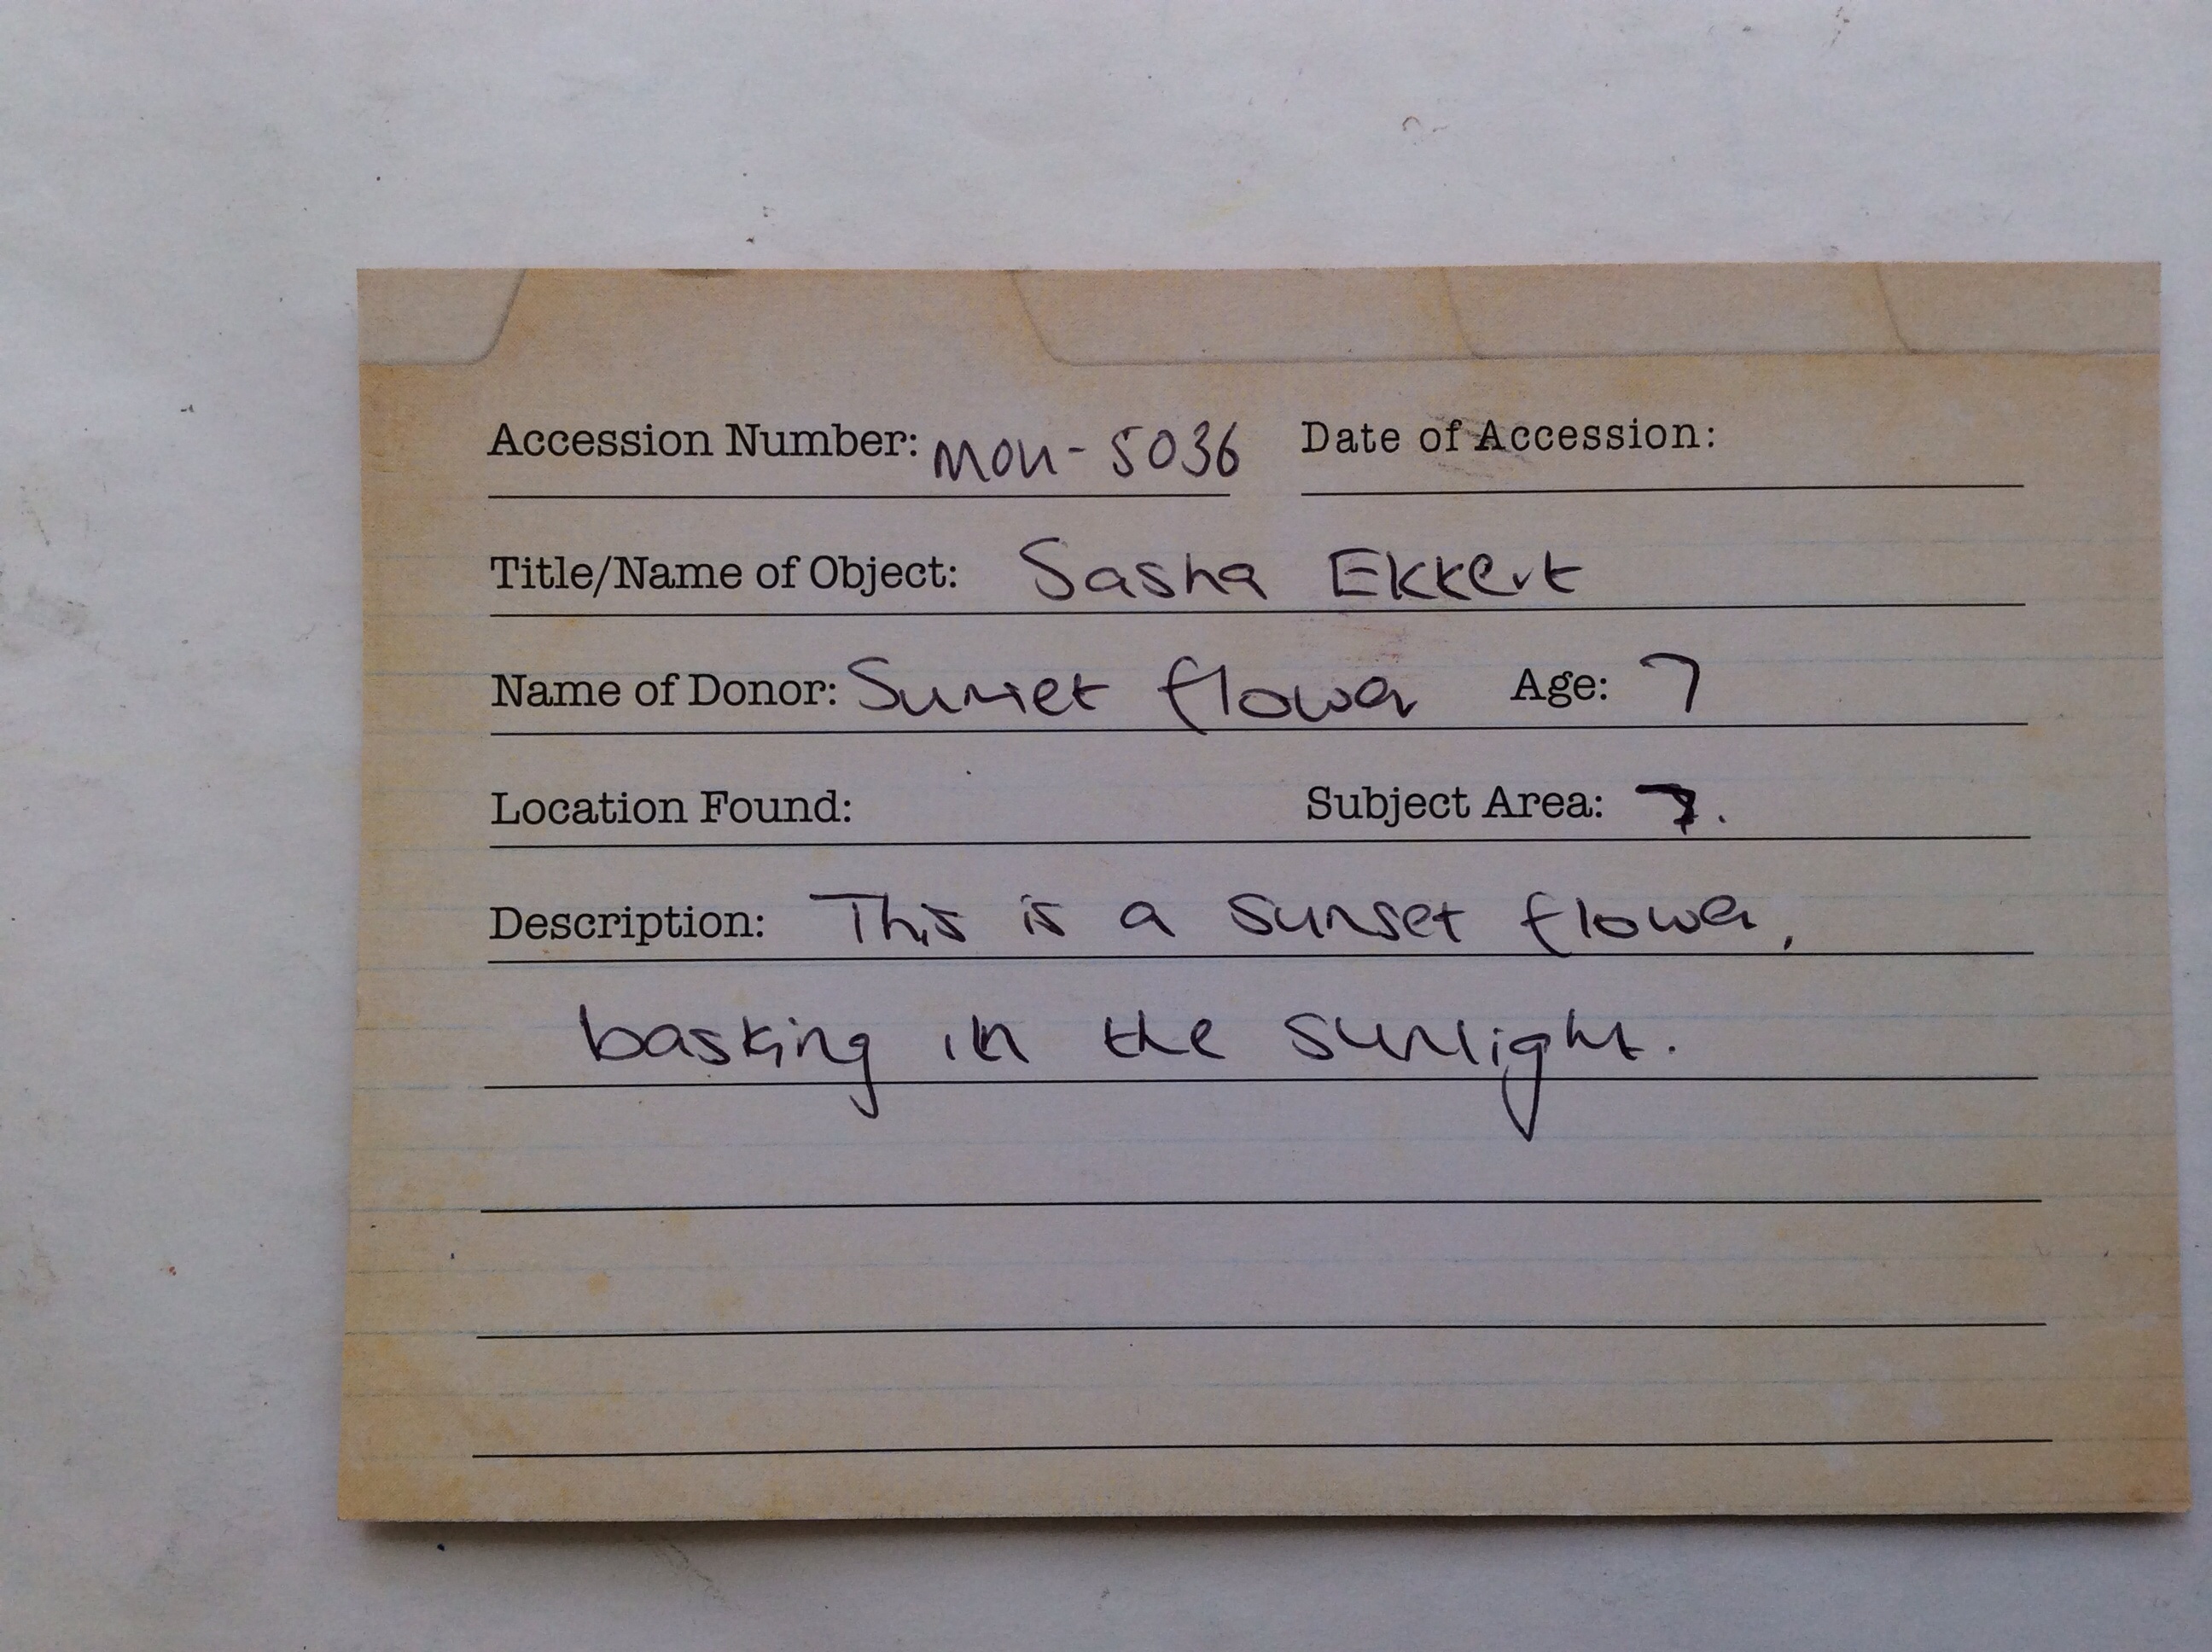 Accession Number: MOU-5036 Date of Accession:
Title/Name of Object: Sasha Ekkert
Name of Donor: Sunset flower Age: 7
Location Found: Subject Area: 7.
Description: This is a sunset flower,
basking in the sunlight.